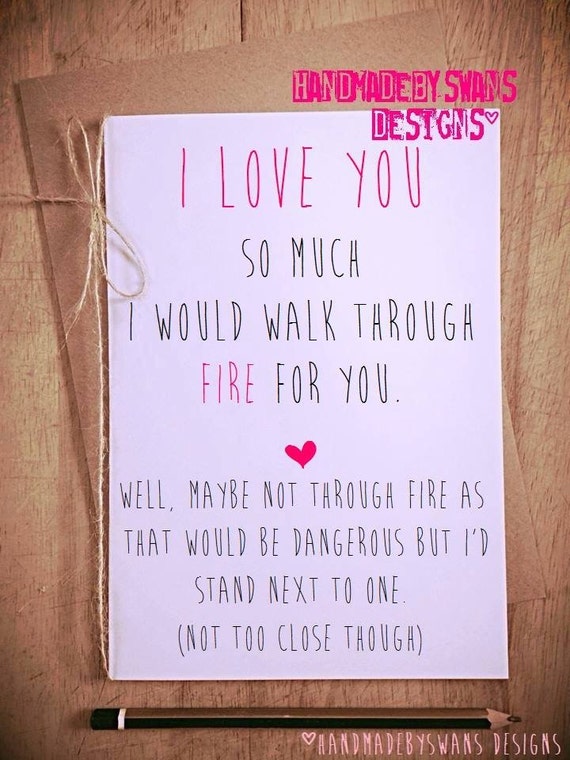 HANDMADE BY SWANS
DESIGNS
I LOVE YOU
SO MUCH
I WOULD WALK THROUGH
FIRE FOR YOU.
WELL, MAYBE NOT THROUGH FIRE AS
THAT WOULD BE DANGEROUS BUT I'D
STAND NEXT TO ONE.
(NOT TOO CLOSE THOUGH)
HANDMADEBYSWANS DESIGNS